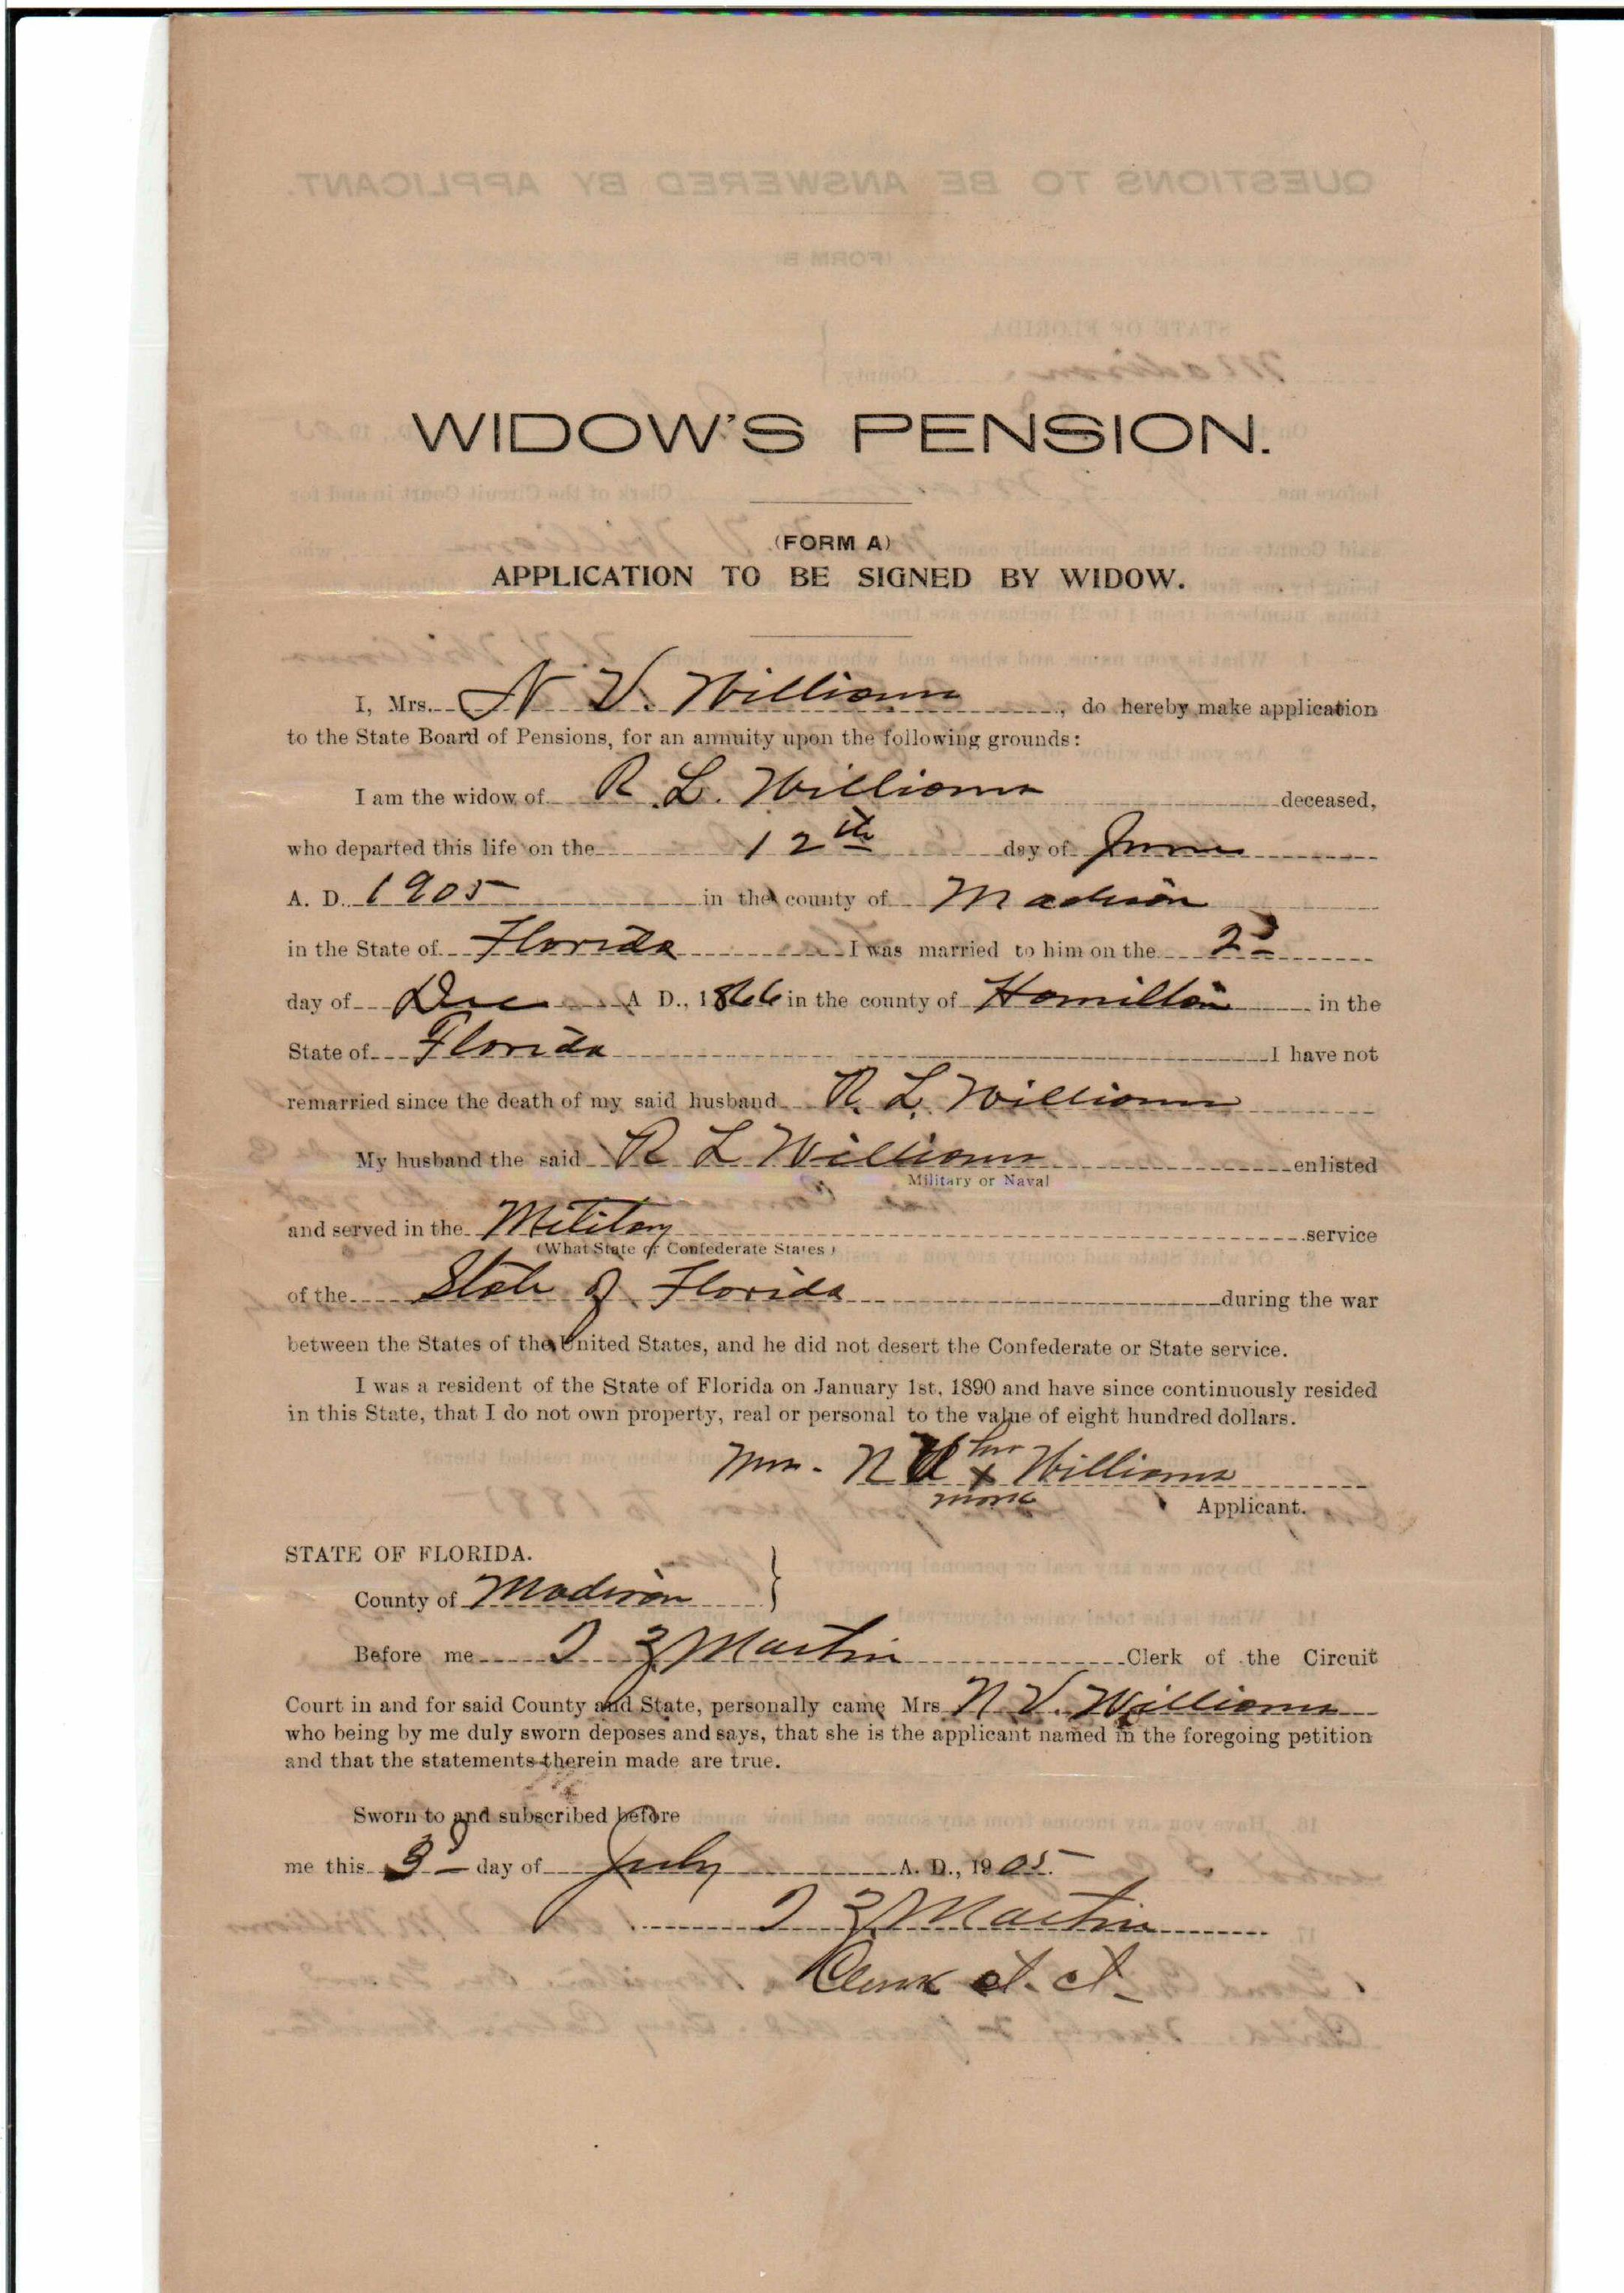 WIDOW'S PENSION.
(FORM A)
APPLICATION TO BE SIGNED BY WIDOW.
I, Mrs. N V. Williams, do hereby make application
to the State Board of Pensions, for an annuity upon the following grounds:
I am the widow of R. L. Williams deceased,
who departed this life on the 12th day of June
A. D. 1905 in the county of Madison
in the State of Florida I was married to him on the 2d
day of Dec A D., 1866 in the county of Hamilton in the
State of Florida I have not
remarried since the death of my said husband R. L. Williams
My husband the said R L Williams enlisted
Military or Naval
and served in the Military service
(What State or Confederate States)
of the State of Florida during the war
between the States of the United States, and he did not desert the Confederate or State service.
I was a resident of the State of Florida on January 1st, 1890 and have since continuously resided
in this State, that I do not own property, real or personal to the value of eight hundred dollars.
her
Mrs. N V x Williams
mark
Applicant.
STATE OF FLORIDA.
County of Madison }
Before me Martin Clerk of the Circuit
Court in and for said County and State, personally came Mrs N V. Williams
who being by me duly sworn deposes and says, that she is the applicant named in the foregoing petition
and that the statements therein made are true.
Sworn to and subscribed before
me this 3d day of July A. D., 1905.
Martin
Clerk